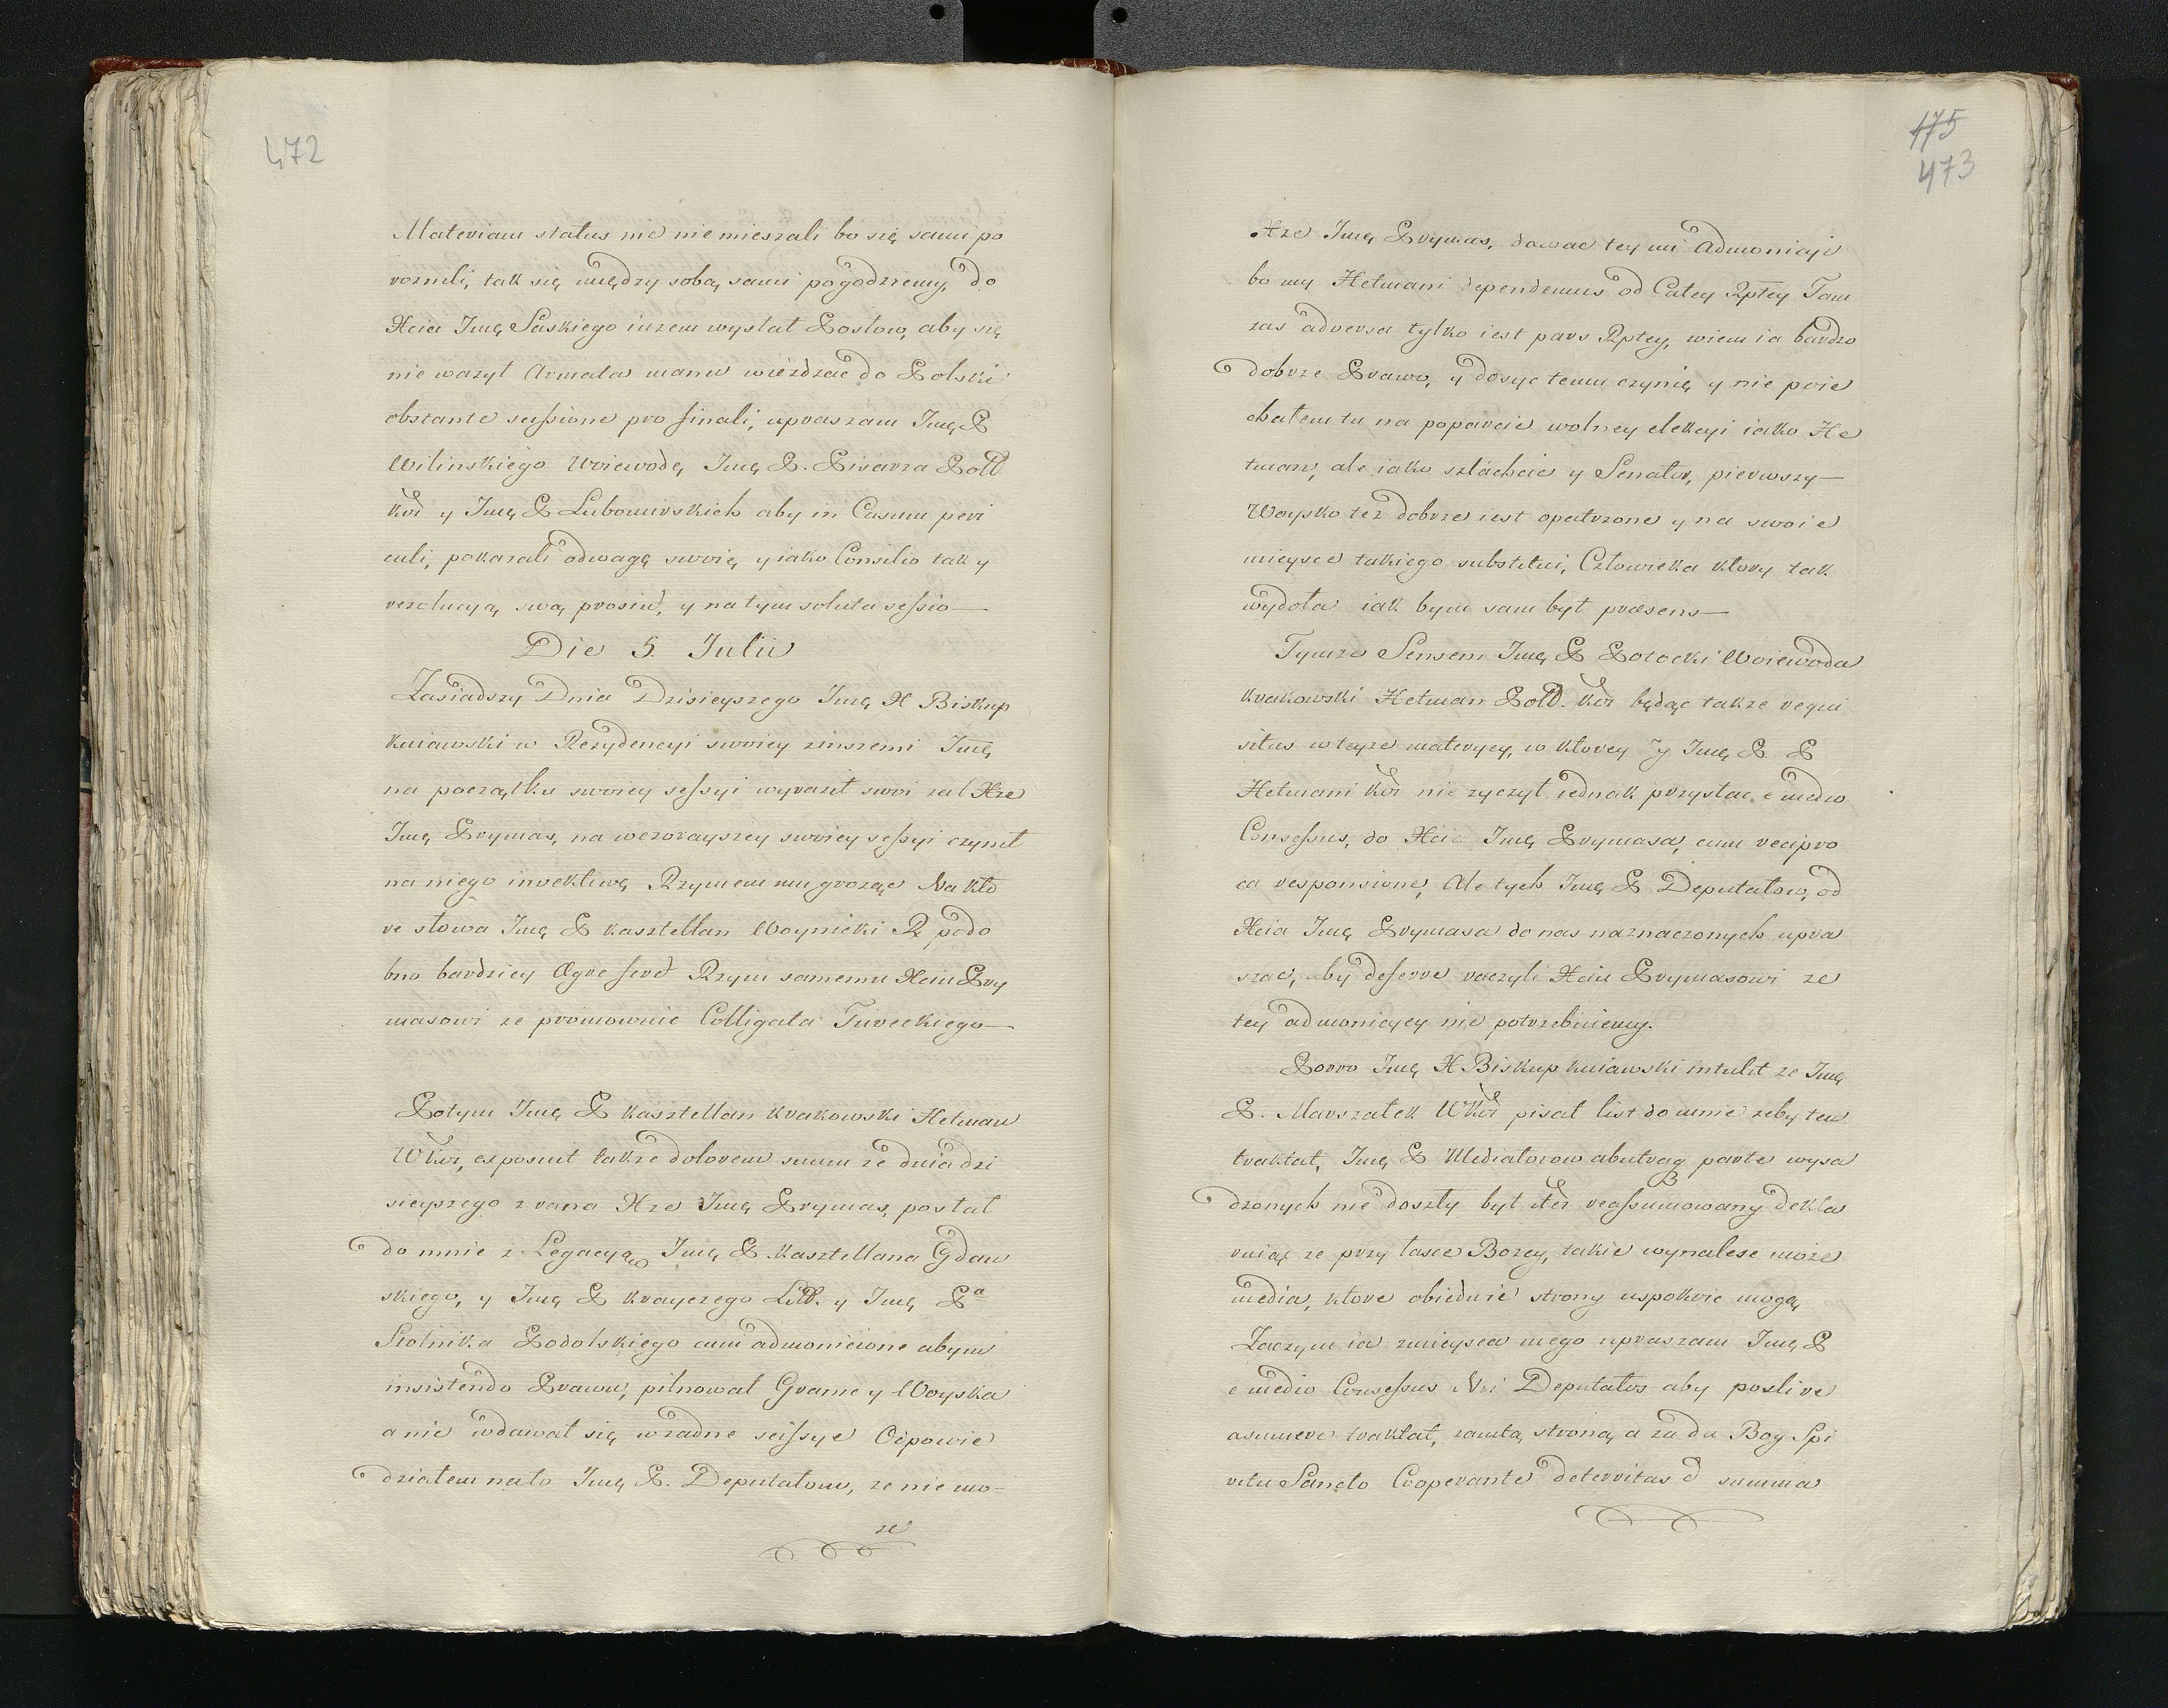 472
Materiam status nie nie mieszali bo się sami po
roznili, tak się między sobą sami pogodziemy, do
Xcia Jmę Saskiego iuzem wystał Posłow, aby się
nie wazył Armata manu wieżdzac do Polski
obstante sessione pro finali, upraszam Jmę P
Wilinskiego Woiewodę Jmę P. Pisarza Poll
kor y Jmę P Lubomirskich aby in Casum peri
culi, pokazali odwagę swoię y iako Consilio tak y
rezolucyą swą prosiu, y na tym soluta sessio—
Die 5. Julii
Zasiadszy Dnia Dzisieyszego Jmę X Biskup
kuiawski w Rezydencyi swoiey zinszemi Jmę
na początku swoiey sessyi wyraził swoi zal Xze
Jmę Prymas, na wczorayszey swoiey sessyi czynił
na niego invektiwę Rzymem mu grożąc Na kto
re słowa Jmę P kasztellan Woynicki R podo
bno bardziey Ægre feret Rzym samemu Xciu Pry
masowi ze promowuie Colligata Tureckiego—
Potym Jmę P kasztellan krakowski Hetman
WKor, exposuit takze dolorem suum ze dnia dzi
sieyszego z rana Xze Jmę Prymas, posłał
do mnie z Legacyą Jmę P. kasztellana Gdan
skiego, y Jmę P krayczego Litt. y Jmę Pa
Stolnika Podolskiego cum admonicione abym
insistendo Prawu, pilnował Granic y Woyska
a nie wdawał się w żadne scissye Odpowie
działem na to Jmę P. Deputatom, ze nie mo-
ze
475
473
Xze Jmę Prymas, dawac tey mi Admonicyi
bo my Hetmani dependemus od Całey Rptey Tam
zas adversa tylko iest pars Rptey, wiem ia bardzo
dobrze Prawo, y dosyc temu czynię y nie poie
chałem tu na poparcie wolney elekcyi iako He
tman, ale iako szlachcic y Senator, pierwszy—
Woysko tez dobrze iest opatrzone y na swoie
mieysce takiego substitui, Człowieka ktory tak
wydoła iak bym sam był præsens—
Tymze Sensem Jmę P Potocki Woiewoda
krakowski Hetman Poll. kor będąc takze requi
situs w teyze materyey, w ktorey y Jmę P. P
Hetmani kor nie zyczył iednak przystac e medio
Consessus, do Xcia Jmę Prymasa, cum recipro
ca responsione, Ale tych Jmę P Deputatow, od
Xcia Jmę Prymasa do nas naznaczonych upra
szac, aby deferre raczyli Xciu Prymasowi ze
tey admonicyey nie potrzebuiemy.
Porro Jmę X Biskup kuiawski intulit ze Jmę
P. Marszałek WKor pisał list do mnie zeby ten
traktat, Jmę P Mediatorow abutraq parte wysa
dzonych nie doszły był iter reassumowany dekla
ruiąc ze przy łasce Bozey, takie wynalesc może
media, ktore obiedwie strony uspokoic mogą
Zaczym ia zmieysca mego upraszam Jmę P
e medio Consessus Nri Deputatos aby postire
asumere traktat, zamtą stroną a za da Bog Spi
ritu Sancto Cooperante deterritas d summa